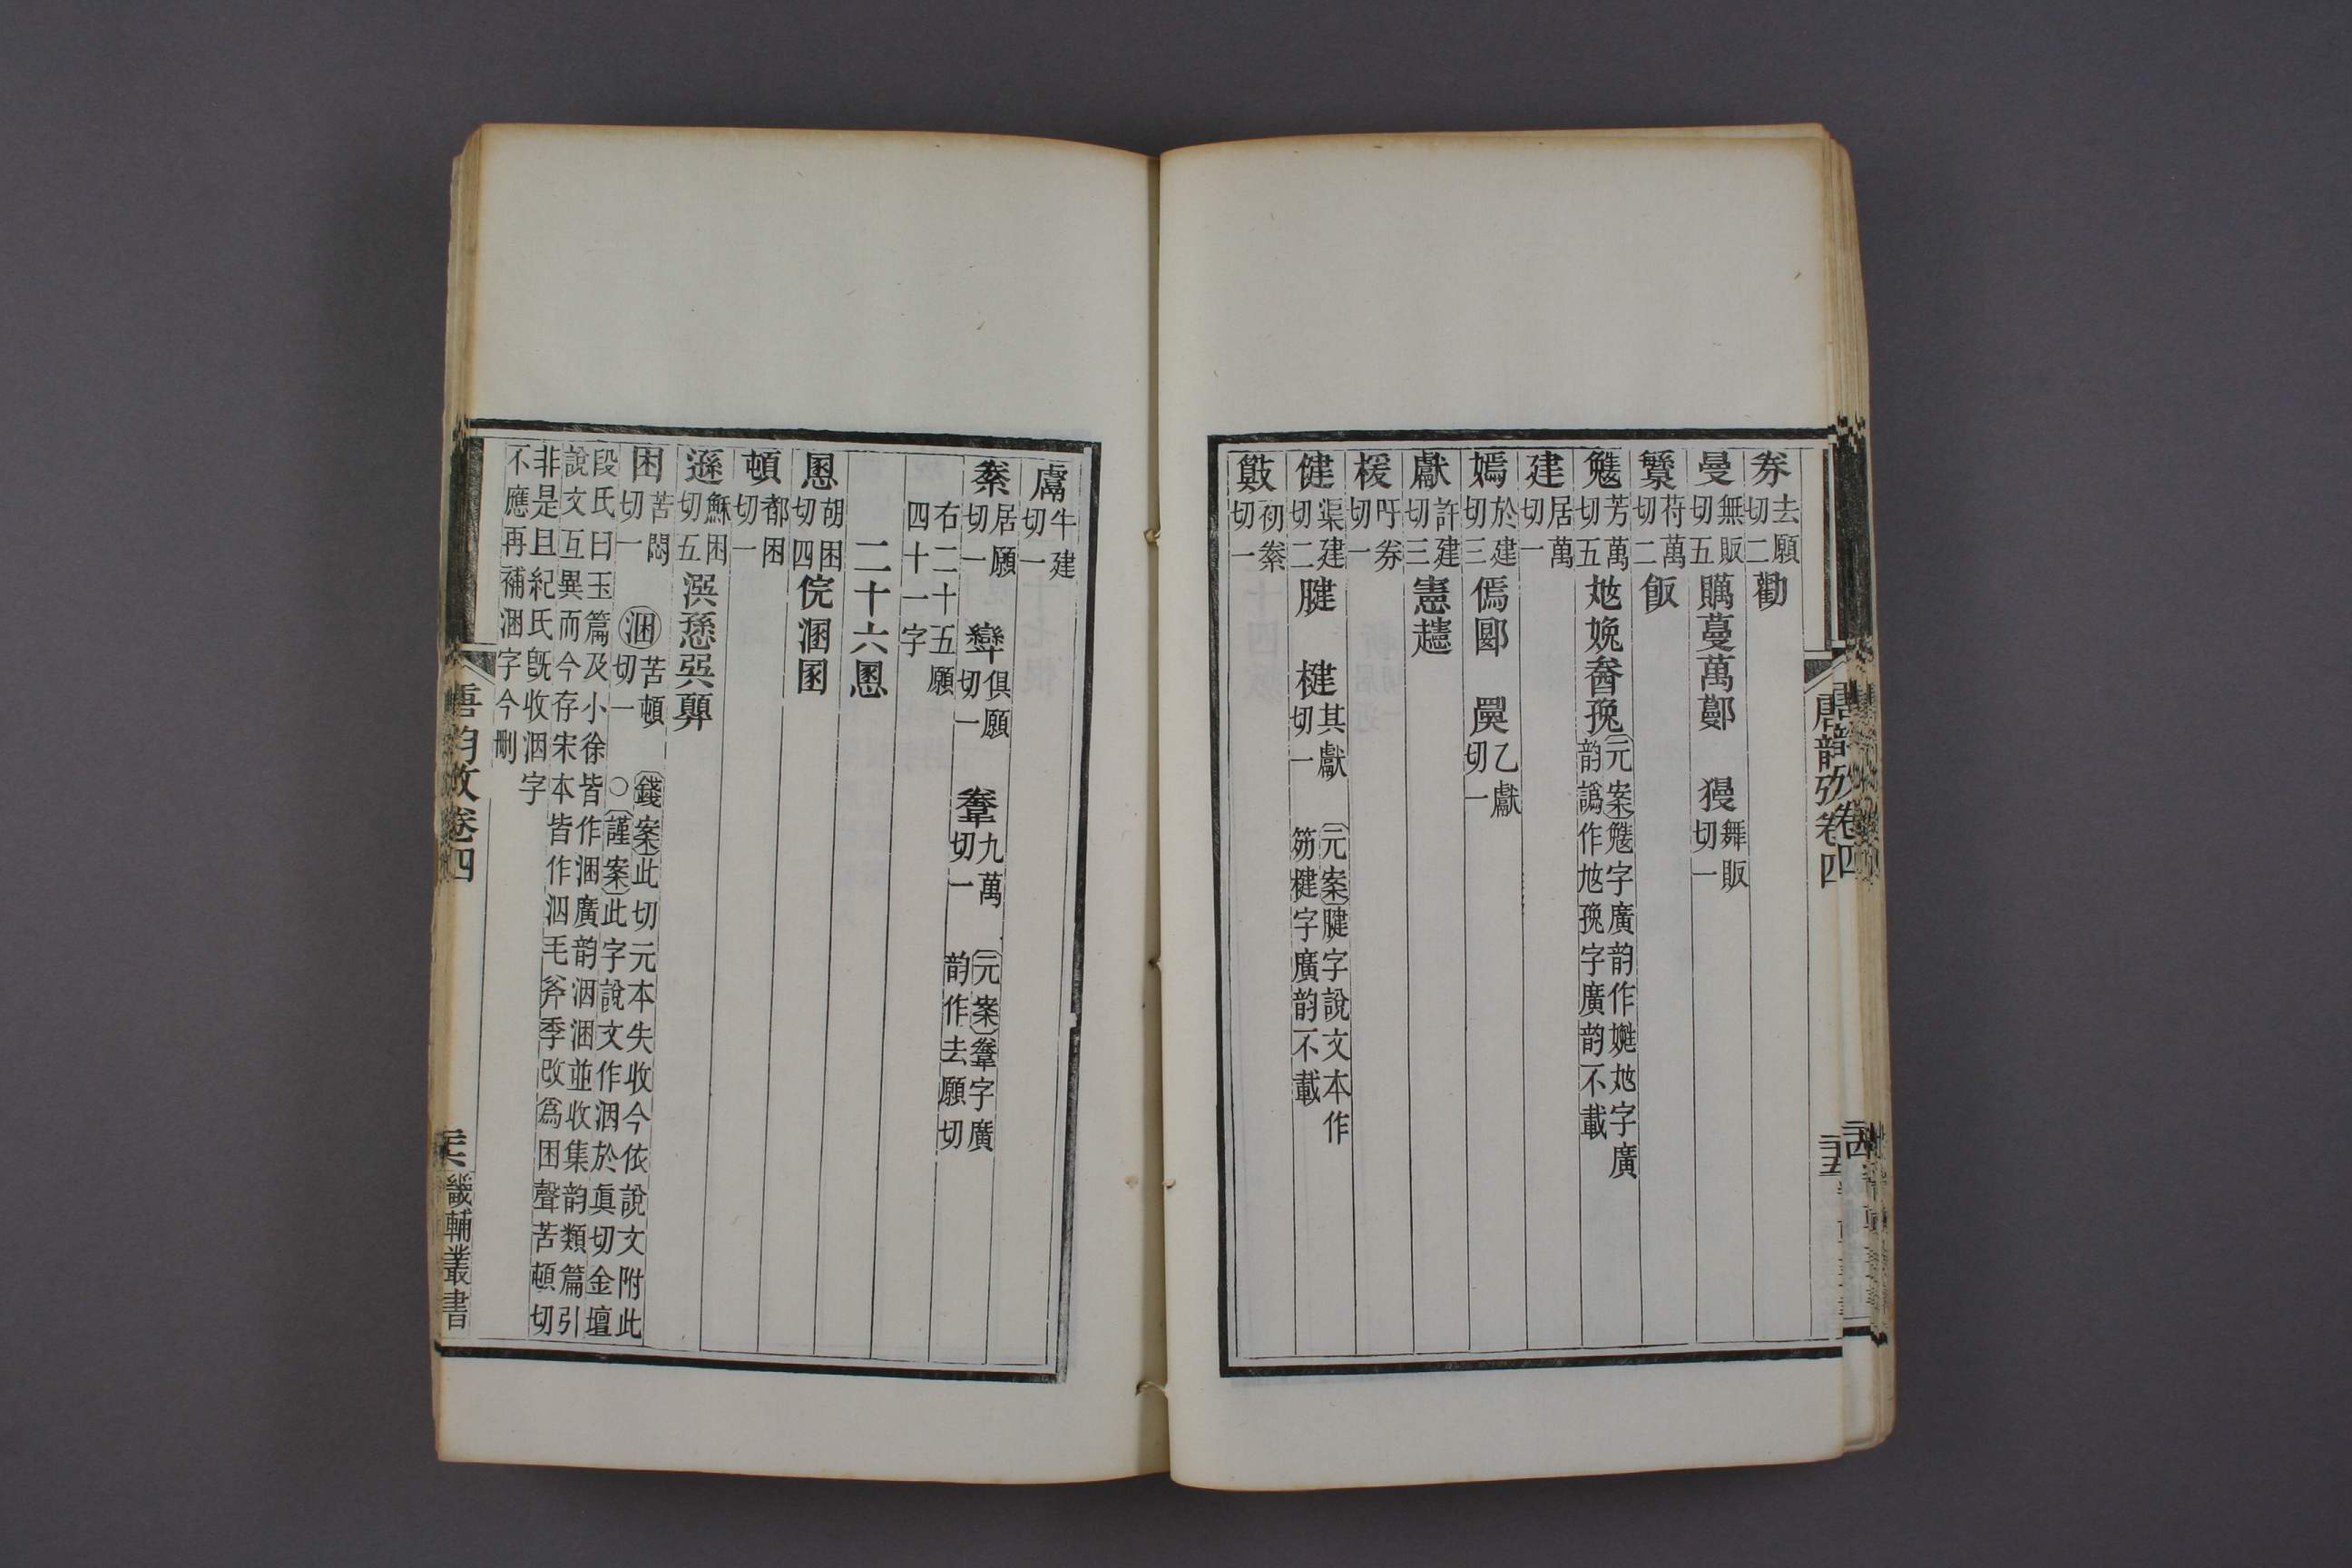 券去願切二勸
曼無販切五贎蔓萬鄤 獌舞販切一
䋣苻萬切二飯
芳萬切五㚿娩㿜㝃元案字廣韵作嬎㚿字廣韵譌作㝃字廣韵不載
建居萬切一
嫣於建切三傿郾 㒟乙獻切一
獻許建切三憲
楥吁券切一
健渠建切二腱 楗其獻切一 元案腱字說文本作笏楗字廣韵不載
初䊎切一
唐韵攷卷四
二十五
鬳牛建切一
䊎居願切一 㡩俱願切一 䡓九萬切一 元案字廣韵作去願切
右二十五願四十一字
二十六慁
慁胡困切四俒溷圂
頓都困切一
遜穌困切五潠愻巺顨
困苦悶切一 涃苦頓切一 錢案此切元本失收今依說文附此○謹案此字說文作泅於眞切金壇
段氏曰玉篇及小徐皆作涃廣韵洇涃並收集韵類篇引
說文互異而今存宋本皆作泅毛斧季改爲困聲苦頓切
非是且紀氏旣收洇字
不應再補涃字今刪
唐韵攷卷四
二十六
畿輔叢書